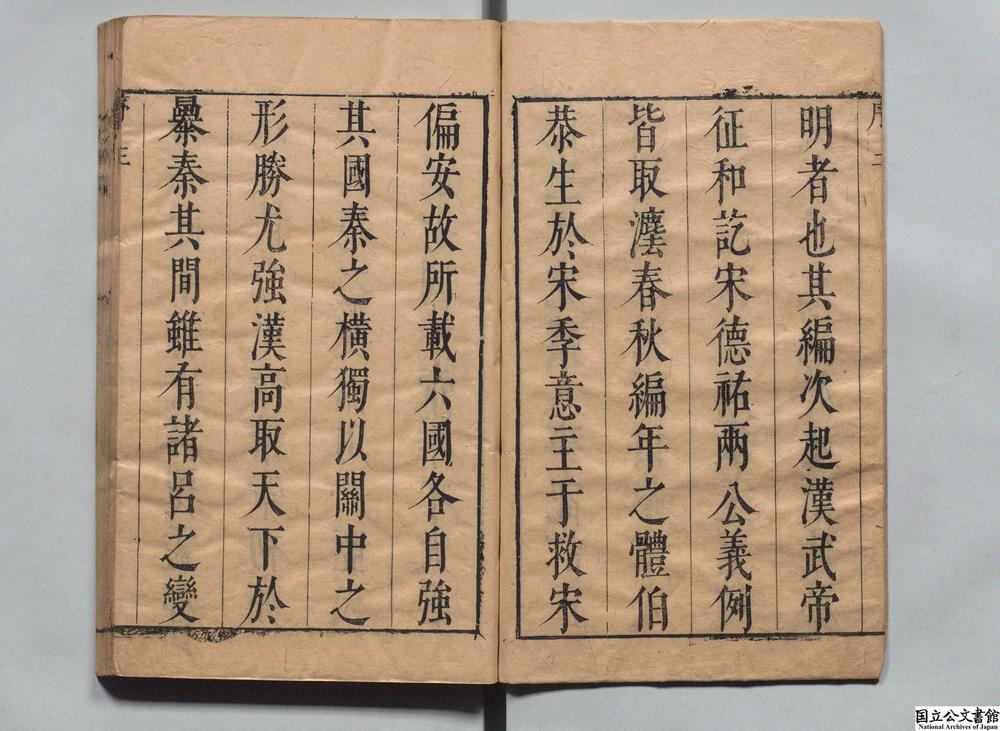 明者也其編次起漢武帝
征和訖宋德祐兩公義例
皆取灋春秋編年之體伯
恭生於宋季意主于救宋
偏安故所載六國各自強
其國秦之橫獨以關中之
形勝尤強漢高取天下於
㬥秦其間雖有諸呂之變
序 三
国立公文書館
National Archives of Japan